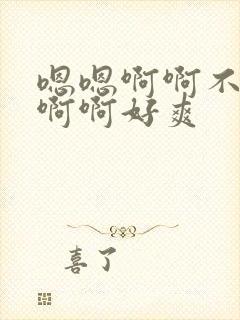 嗯嗯啊啊不
啊啊好爽
喜了